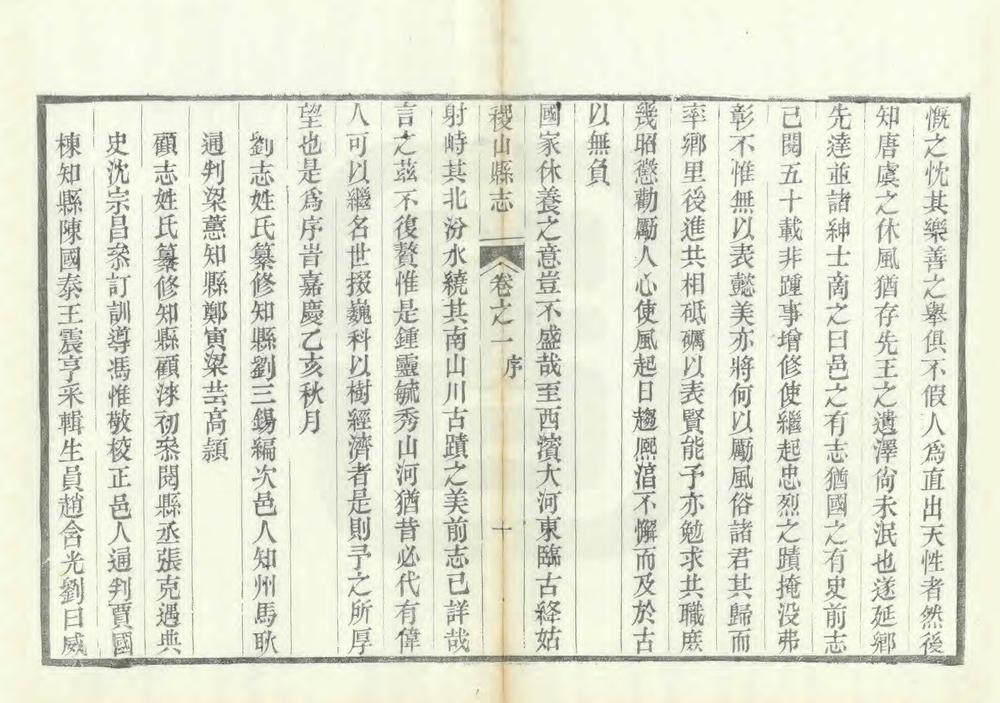 慨之忱其樂善之舉俱不假人爲直出天性者然後
知唐虞之休風猶存先王之遺澤尙未泯也遂延鄉
先達並諸紳士啇之曰邑之有志猶國之有史前志
已閱五十載非踵事增修使繼起忠烈之蹟掩没弗
彰不惟無以表懿美亦將何以勵風俗諸君其歸而
率鄉里後進共相砥礪以表賢能予亦勉求共職庶
幾昭懲勸勵人心使風起日趨熈涫不懈而及於古
以無負
國家休養之意豈不盛哉至西濱大河東臨古絳姑
稷山縣志
卷之一
序
十
射峙其北汾水繞其南山川古蹟之美前志已詳哉
言之茲不復贅惟是鍾靈毓秀山河猶昔必代有偉
人可以繼名世掇巍科以樹經濟者是則予之所厚
望也是爲序旹嘉慶乙亥秋月
劉志姓氏纂修知縣劉三錫編次邑人知州馬耿
通判梁蕙知縣鄭寅梁芸高頴
顧志姓氏纂修知縣顧涑初叅閱縣丞張克遇典
史沈宗昌叅訂訓導馮惟敬校正邑人通判賈國
棟知縣陳國泰王震亨采輯生員趙含光劉曰威